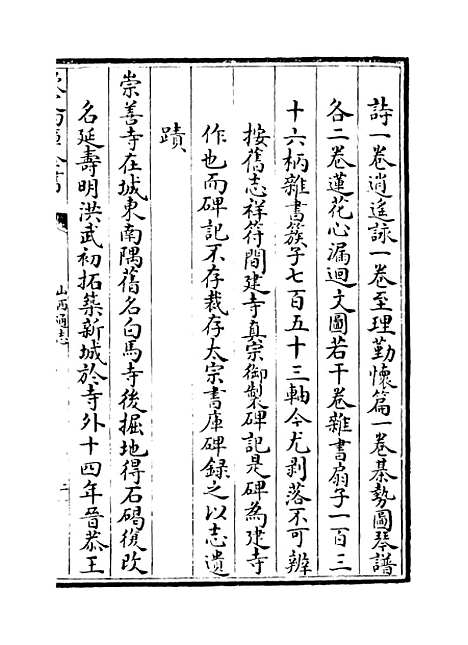 詩一卷逍遙詠一卷至理勤懷篇一卷棊勢圖琴譜
各二卷蓮花心漏迴文圖若干卷雜書扇子一百三
十六柄雜書簇子七百五十三軸今尤剥落不可辨
按舊志祥符間建寺真宗御製碑記是碑為建寺
作也而碑記不存裁存太宗書庫碑録之以志遺
蹟
崇善寺在城東南隅舊名白馬寺後掘地得石碣復改
名延壽明洪武初拓築新城於寺外十四年晉恭王
山西通志